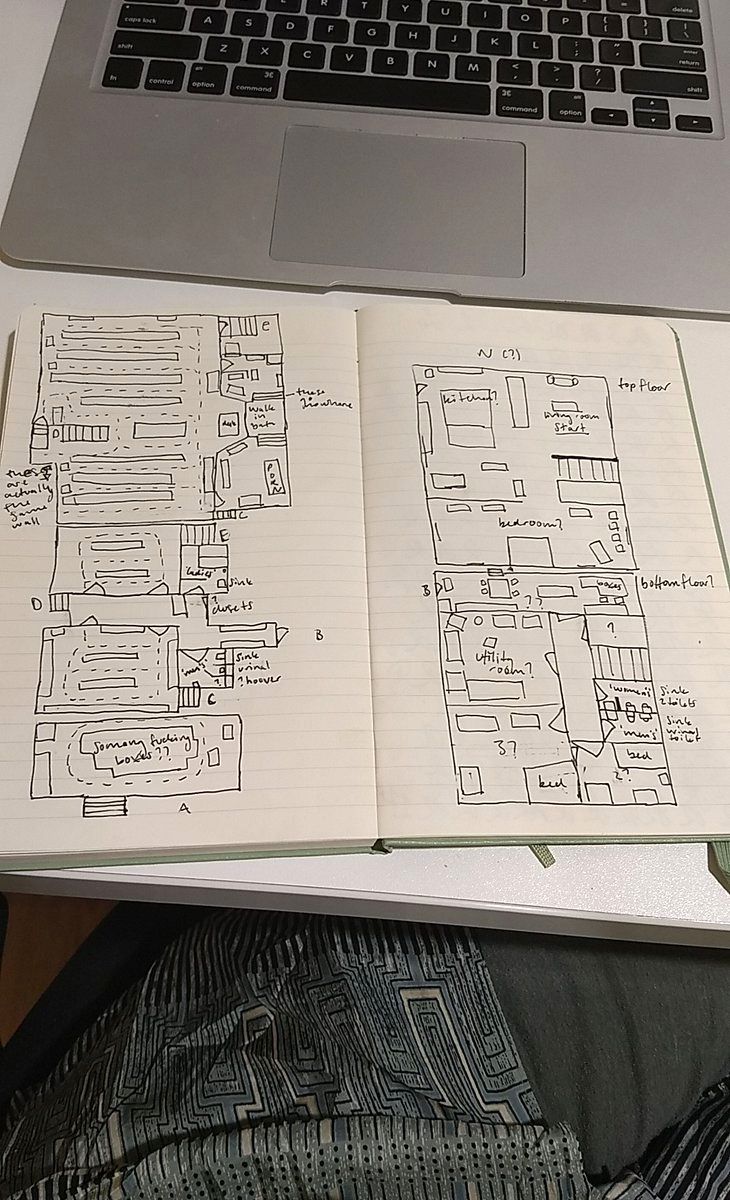 R T Y U I
delete
caps lock
A S D F G H J K L
enter
return
shift
Z X C V B N M
< , > . ? /
shift
fn
control
alt
option
⌘
command
⌘
command
alt
option
E
these
walk
in
bath
desk
PORN
D
these
are
actually
the
same
wall
C
E
'ladies'
sink
?
closets
D
B
'men's'
sink
urinal
? hoover
?
C
so many fucking
boxes??
A
N (?)
top floor
kitchen?
living room
start
bedroom?
B
boxes
bottom floor?
??
?
utility
room?
'women's'
sink
2 toilets
'men's'
sink
urinal
toilet
3?
bed
bed
2?